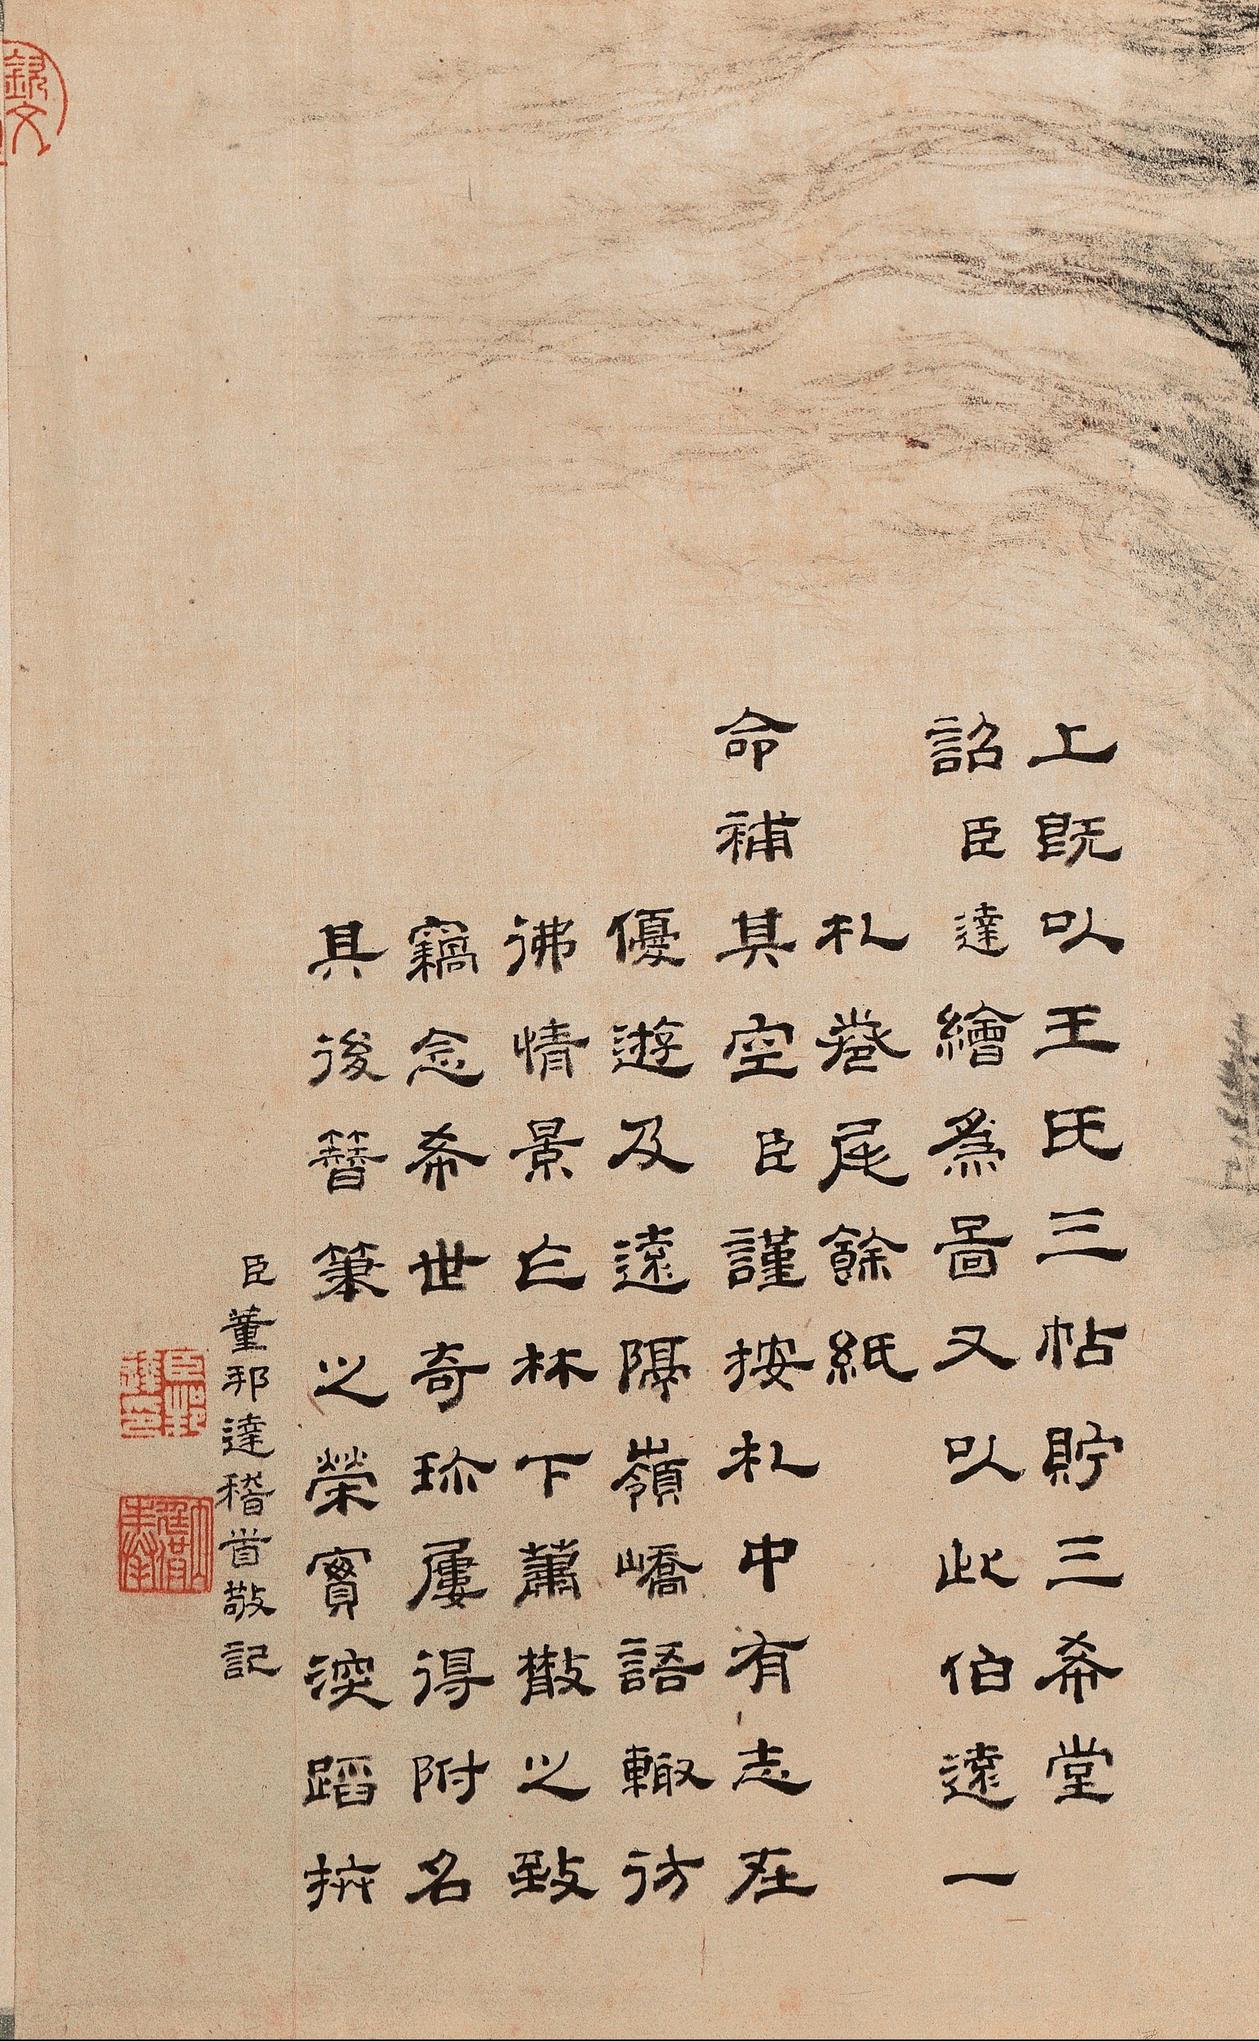 上既以王氏三帖貯三希堂
詔臣達繪為啚又以此伯遠一
札卷尾餘紙
命補其空臣謹按札中有志在
優遊及遠隔嶺嶠語輙彷
彿情景亡林下蕭散之致
竊念希世奇珎屢得附名
其後簪筆之榮實深蹈拚
臣董邦達稽首敬記